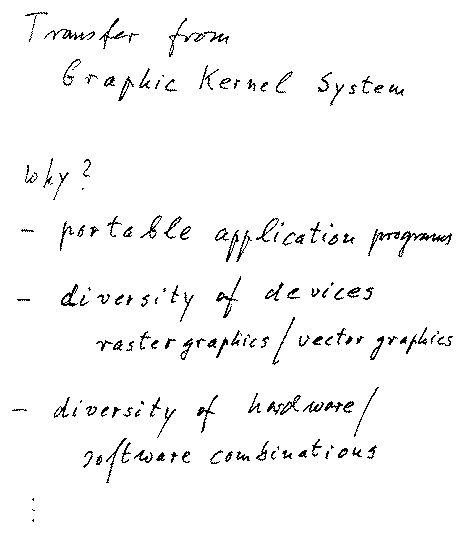 Transfer from
Graphic Kernel System
Why?
- portable application programs
- diversity of devices
raster graphics / vector graphics
- diversity of hardware /
software combinations
⋮